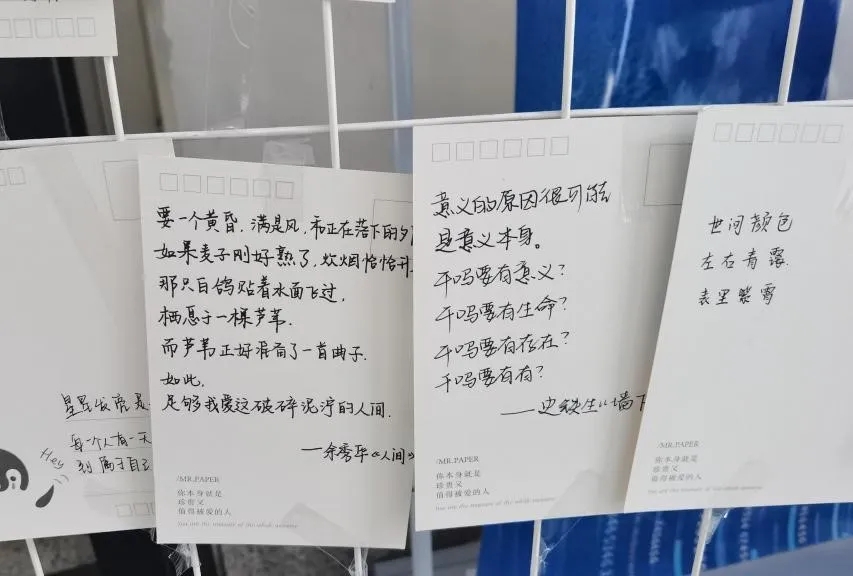 星星发亮是
每一个人有一天
到属于自己
Hey
要一个黄昏，满是风，和正在落下的夕
如果麦子刚好熟了，炊烟恰恰升
那只白鸽贴着水面飞过，
栖息于一棵芦苇.
而芦苇正好准备了一首曲子.
如此.
足够我爱这破碎泥泞的人间.
——余秀华《人间》
/MR.PAPER
你本身就是
珍贵又
值得被爱的人
you are the treasure of the whole universe
意义的原因很可能
是意义本身。
干吗要有意义？
干吗要有生命？
干吗要有存在？
干吗要有有？
——史铁生《墙下
/MR.PAPER
你本身就是
珍贵又
值得被爱的人
you are the treasure of the whole universe
世间颜色
左右青霭.
表里紫霄
/MR.PAPER
你本身就是
珍贵又
值得被爱的人
you are the treasure of the whole universe